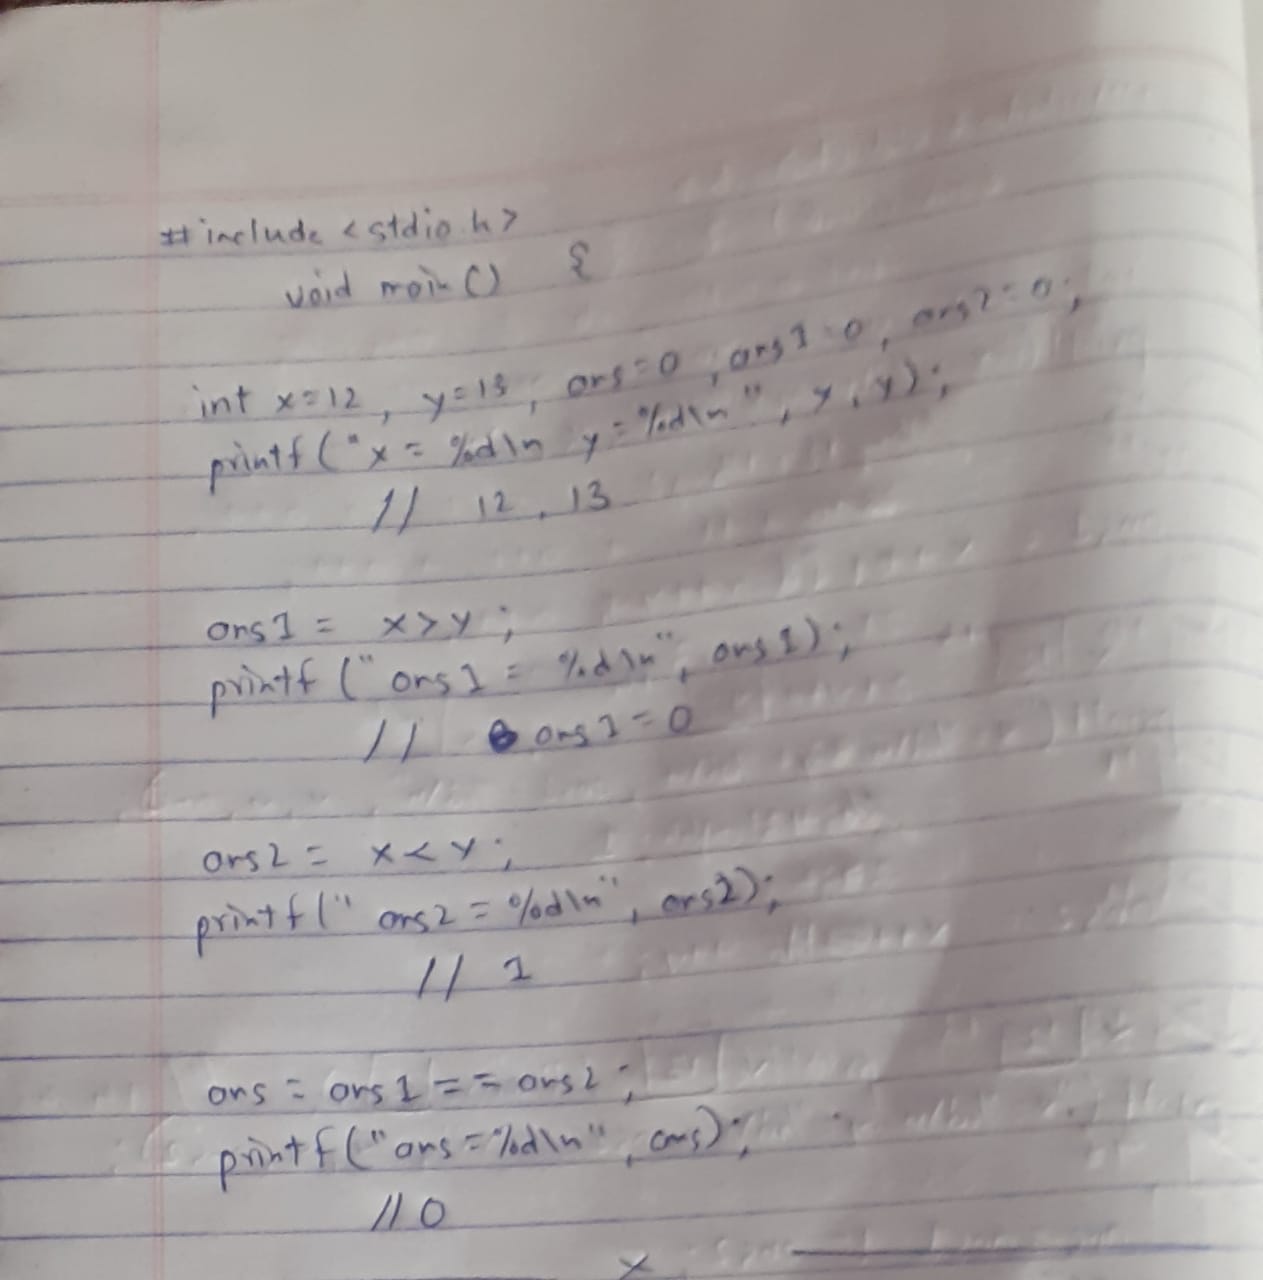 #include <stdio.h>
void main() {
int x=12, y=13, ans=0, ans1=0, ans2=0;
printf("x = %d\n y = %d\n", y, y);
// 12, 13
ans1 = x>y;
printf("ans1 = %d\n", ans1);
// ans1=0
ans2 = x<y;
printf(" ans2 = %d\n", ans2);
// 1
ans = ans1 == ans2;
printf("ans=%d\n", ans);
//0
x